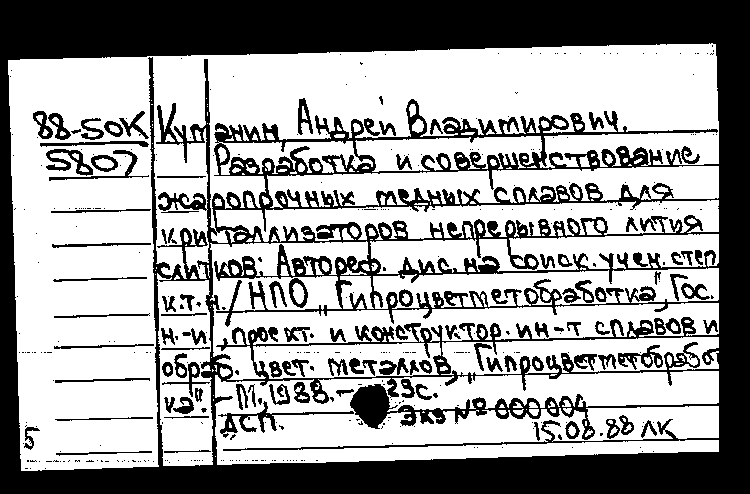 88-50К Кутанин, Андрей Владимирович.
5807 Разработка и совершенствование
жаропрочных медных сплавов для
кристаллизаторов непрерывного лития
слитков: Автореф. дис. на соиск. учен. степ
к.т.н./НПО „Гипроцветметобработка", Гос.
н.-и., проект. и конструктор. ин-т сплавов и
обраб. цвет. металлов, „Гипроцветметобработ
ка". - М., 1988. - 23с.
ДСП. Экз № 000004
5 15.08.88 ЛК